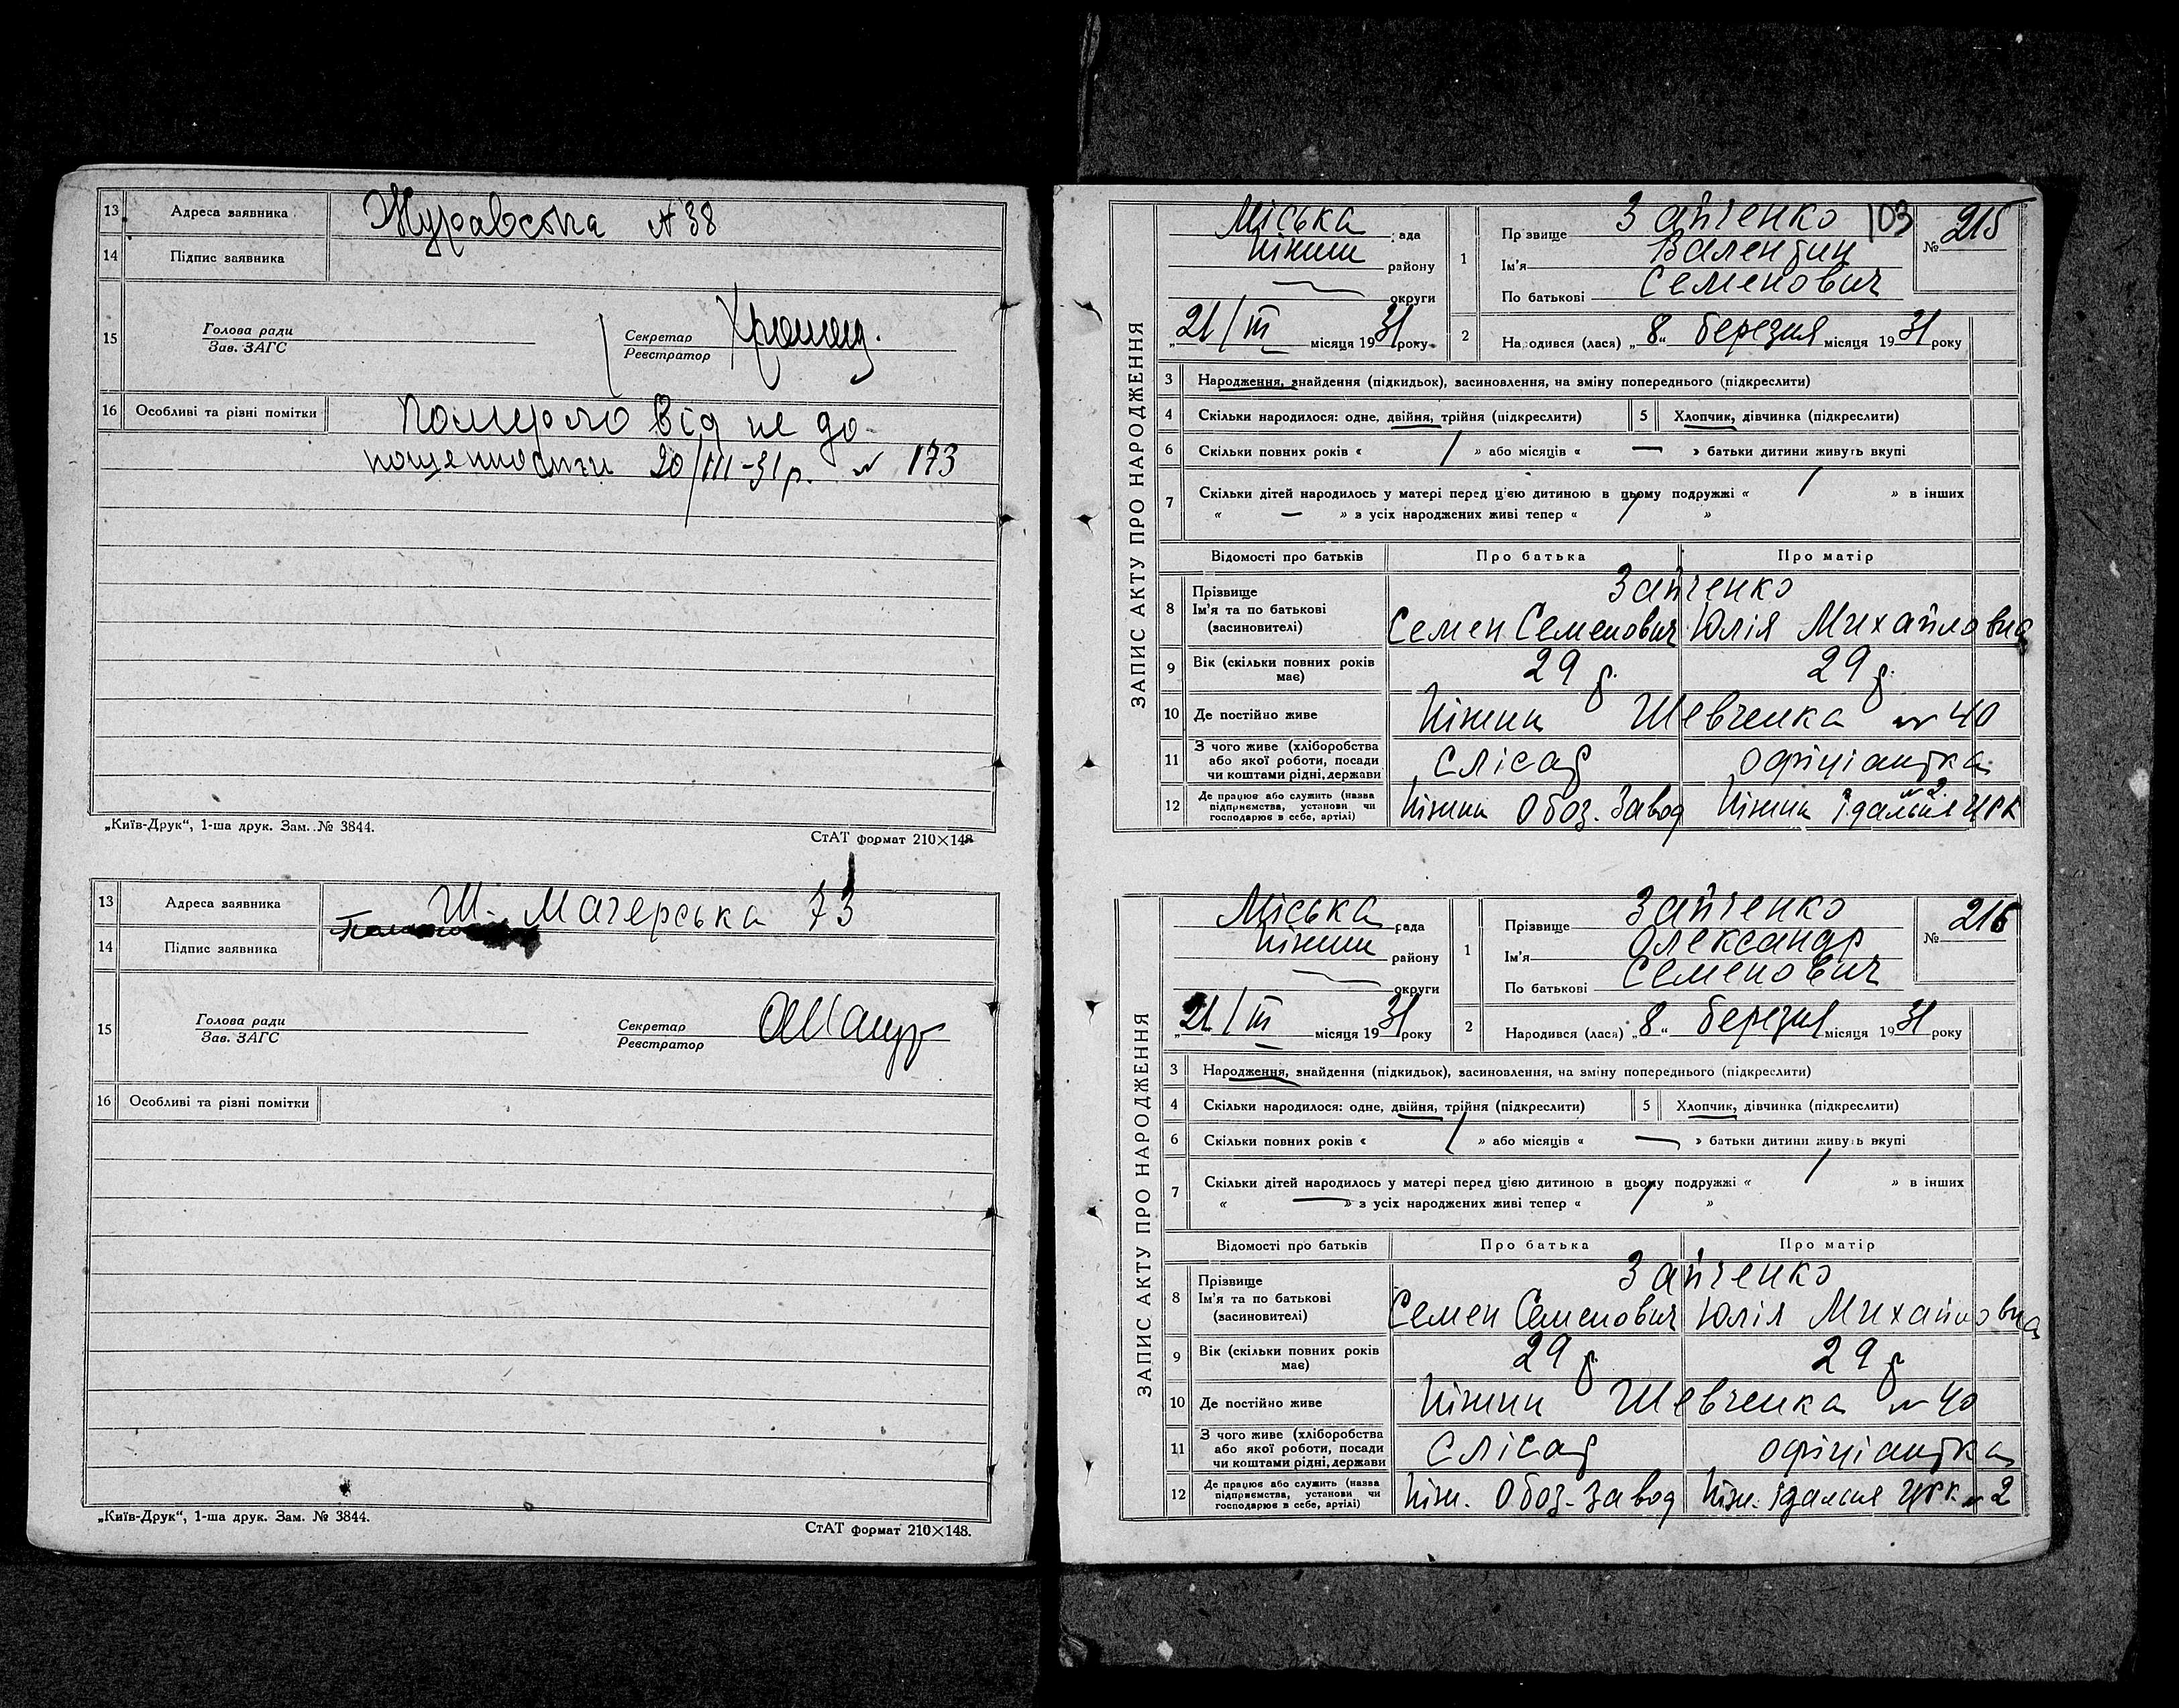 13 Адреса заявника Журавська № 38
14 Підпис заявника
15 Голова ради
Зав. ЗАГС
Секретар
Реєстратор
16 Особливі та різні помітки Померло від не до
ношенности 20/III-31р. № 173
„Київ-Друк“, 1-ша друк. Зам. № 3844.
СтАТ формат 210×148
13 Адреса заявника Ш. Магерська 73
14 Підпис заявника
15 Голова ради
Зав. ЗАГС
Секретар
Реєстратор
16 Особливі та різні помітки
„Київ-Друк“, 1-ша друк. Зам. № 3844.
СтАТ формат 210×148.
ЗАПИС АКТУ ПРО НАРОДЖЕННЯ
Міська рада
Ніжин району
округи
„21/III місяця 1931 року
1 Прізвище Зайченко 103
Ім'я Валентин
По батькові Семенович
№ 215
2 Народився (лася) „8“ березня місяця 1931 року
3 Народження, знайдення (підкидьок), засиновлення, на зміну попереднього (підкреслити)
4 Скільки народилося: одне, двійня, трійня (підкреслити) 5 Хлопчик, дівчинка (підкреслити)
6 Скільки повних років « / » або місяців « — » батьки дитини живуть вкупі
7 Скільки дітей народилось у матері перед цією дитиною в цьому подружжі « / » в інших
« — » з усіх народжених живі тепер « / »
Відомості про батьків Про батька Про матір
8 Прізвище Зайченко
Ім'я та по батькові
(засиновителі) Семен Семенович Юлія Михайловна
9 Вік (скільки повних років
має) 29 р. 29 р.
10 Де постійно живе Ніжин Шевченка № 40
11 З чого живе (хліборобства
або якої роботи, посади
чи коштами рідні, держави Слісар офіціантка
12 Де працює або служить (назва
підприємства, установи чи
господарює в себе, артілі) Ніжин Обоз. Завод Ніжин їдальня № 2 ЦРК
ЗАПИС АКТУ ПРО НАРОДЖЕННЯ
Міська рада
Ніжин району
округи
„21/III місяця 1931 року
1 Прізвище Зайченко
Ім'я Олександр
По батькові Семенович
№ 216
2 Народився (лася) „8“ березня місяця 1931 року
3 Народження, знайдення (підкидьок), засиновлення, на зміну попереднього (підкреслити)
4 Скільки народилося: одне, двійня, трійня (підкреслити) 5 Хлопчик, дівчинка (підкреслити)
6 Скільки повних років « / » або місяців « — » батьки дитини живуть вкупі
7 Скільки дітей народилось у матері перед цією дитиною в цьому подружжі « / » в інших
« — » з усіх народжених живі тепер « / »
Відомості про батьків Про батька Про матір
8 Прізвище Зайченко
Ім'я та по батькові
(засиновителі) Семен Семенович Юлія Михайловна
9 Вік (скільки повних років
має) 29 р. 29 р
10 Де постійно живе Ніжин Шевченка № 40
11 З чого живе (хліборобства
або якої роботи, посади
чи коштами рідні, держави Слісар офіціантка
12 Де працює або служить (назва
підприємства, установи чи
господарює в себе, артілі) Ніж. Обоз-Завод Ніж. їдальня ЦРК № 2